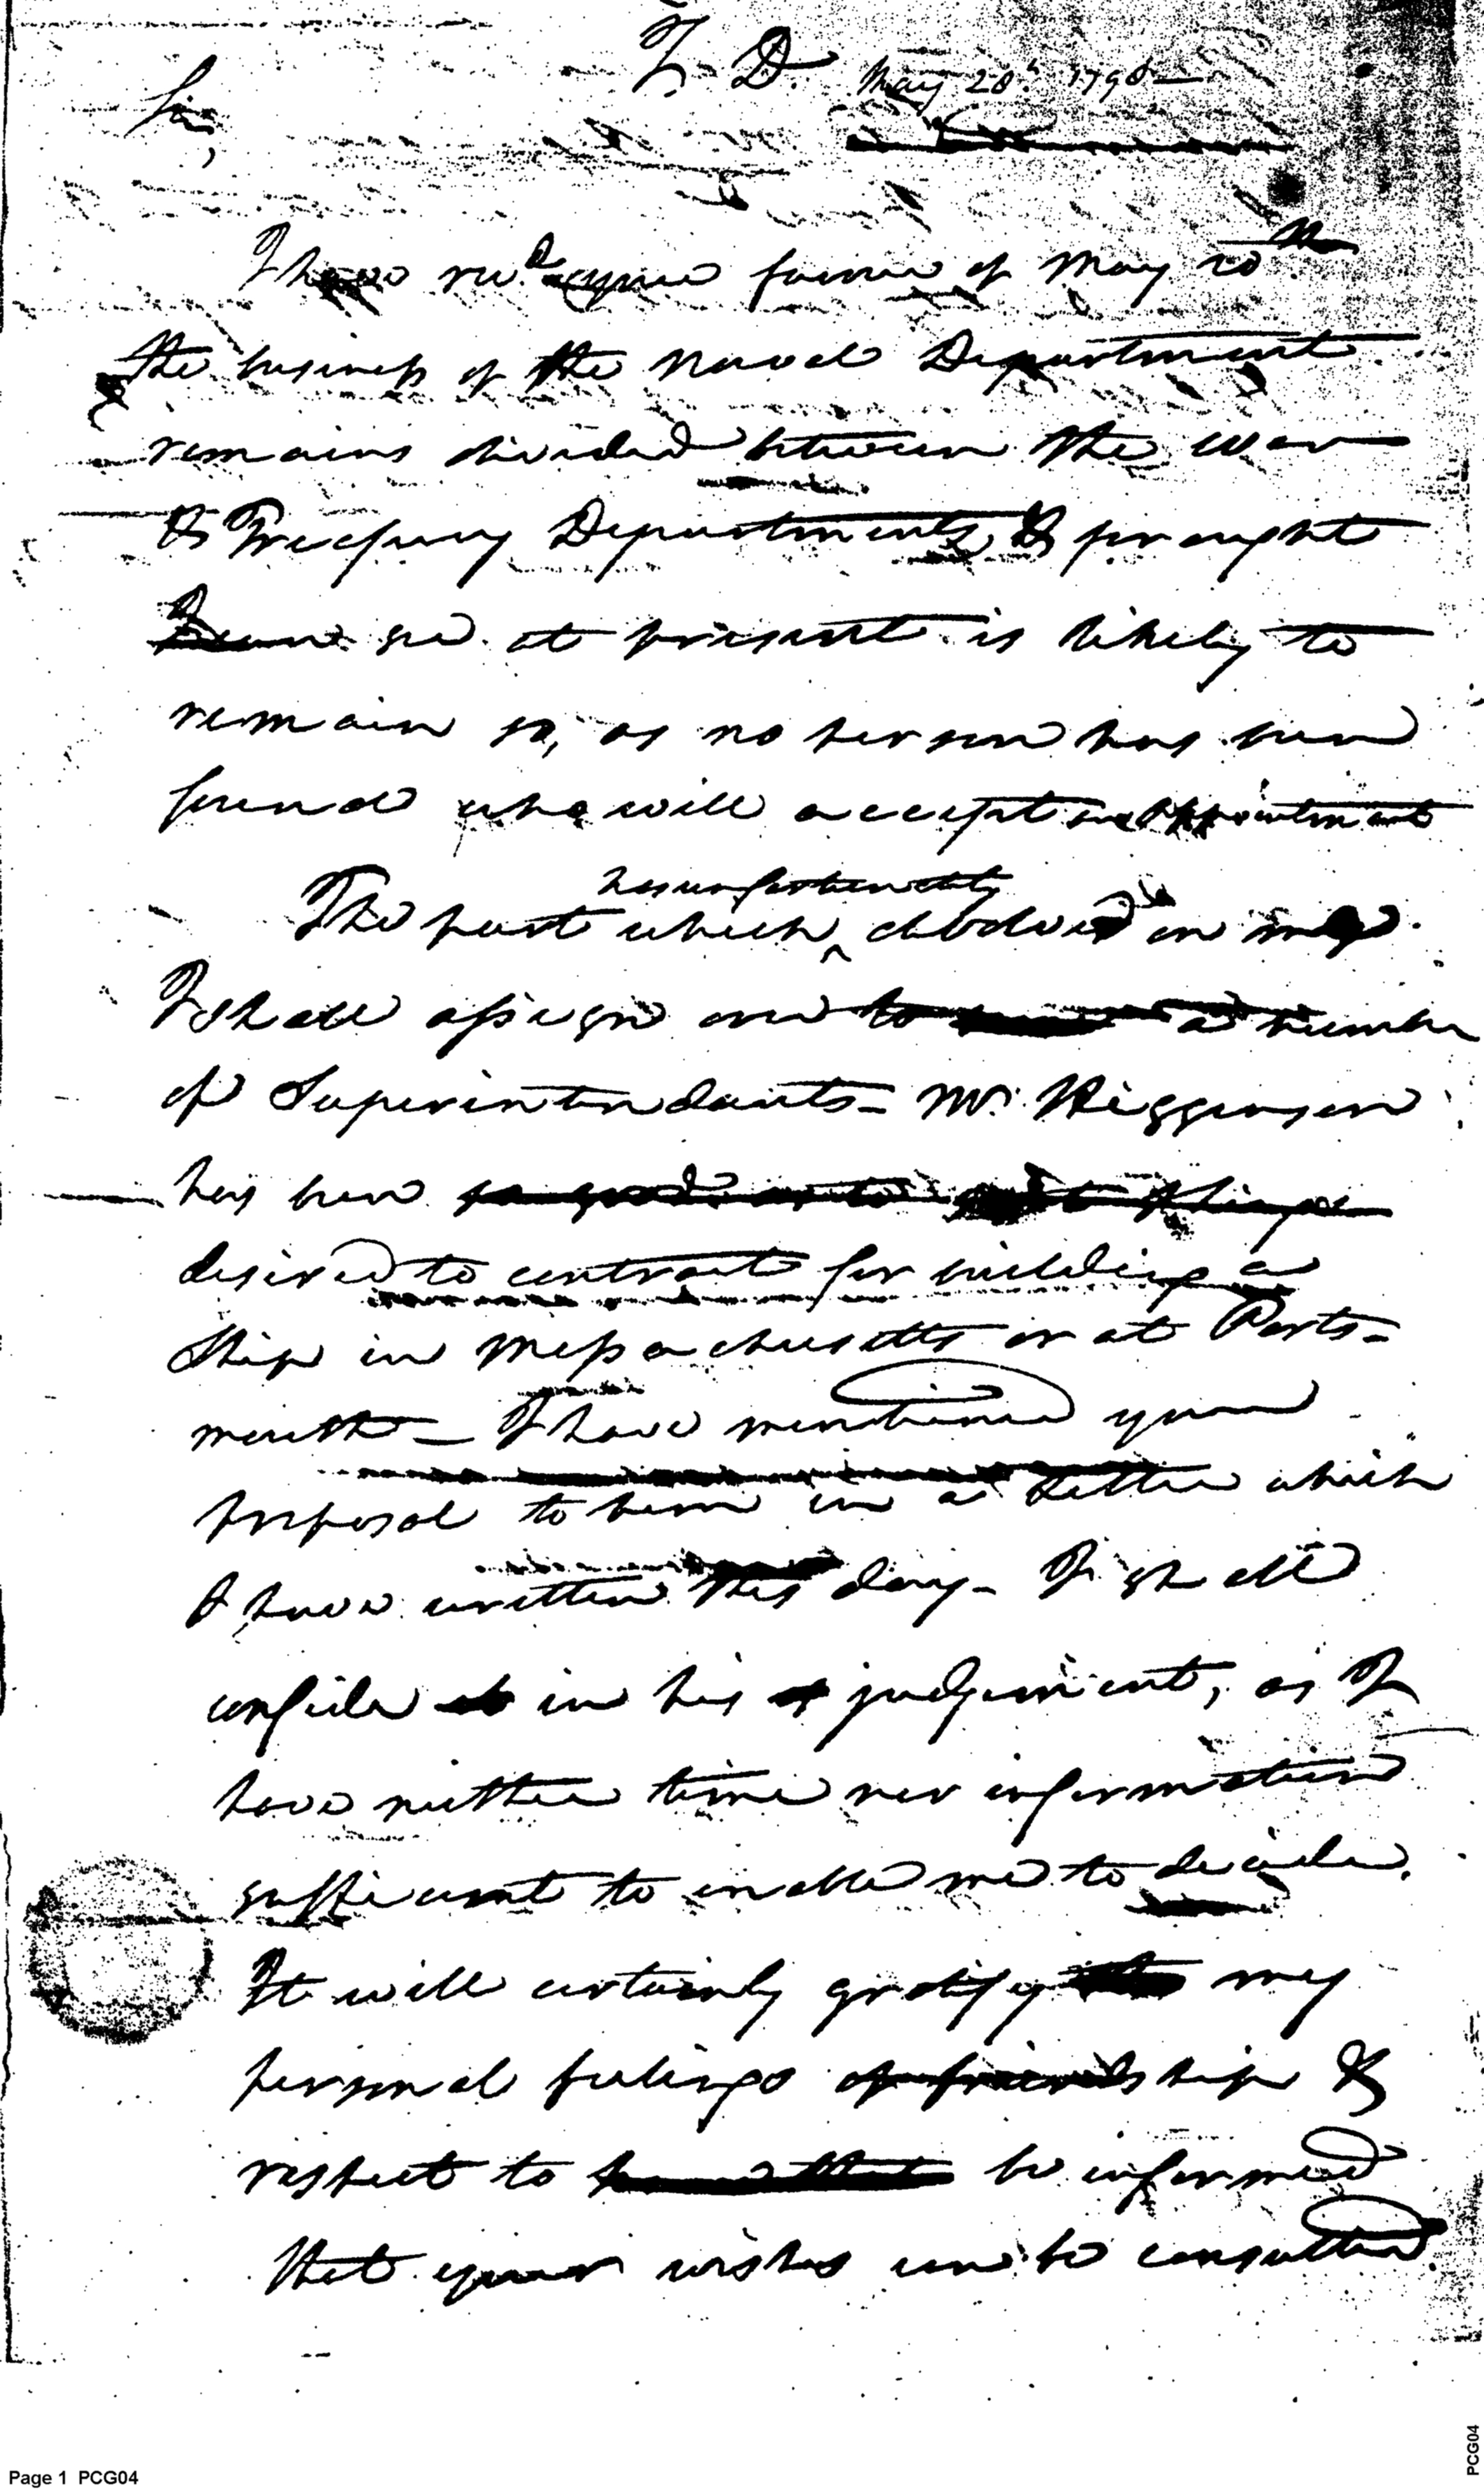 T. D. May 28th 1798
Sir,
I have recd. your favour of May 20th
the business of the Naval Department
remains divided between the War
& Treasury Departments, & for aught
I can see at present is likely to
remain so, as no person has been
found who will accept an appointment
has unfortunately
The part which ^ devolved on me
I shall assign over to a number
of Superintendants - Mr. Higginson
has been so good as to
desired to contract for building a
Ship in Massachusetts or at Ports=
mouth - I have mentioned your
proposal to him in a Letter which
I have written this day - I shall
confide in his judgement, as I
have neither time nor information
sufficient to enable me to decide.
It will certainly gratify my
personal feelings of friendship &
respect to be informed
that your wishes can be consulted.
Page 1 PCG04
PCG04